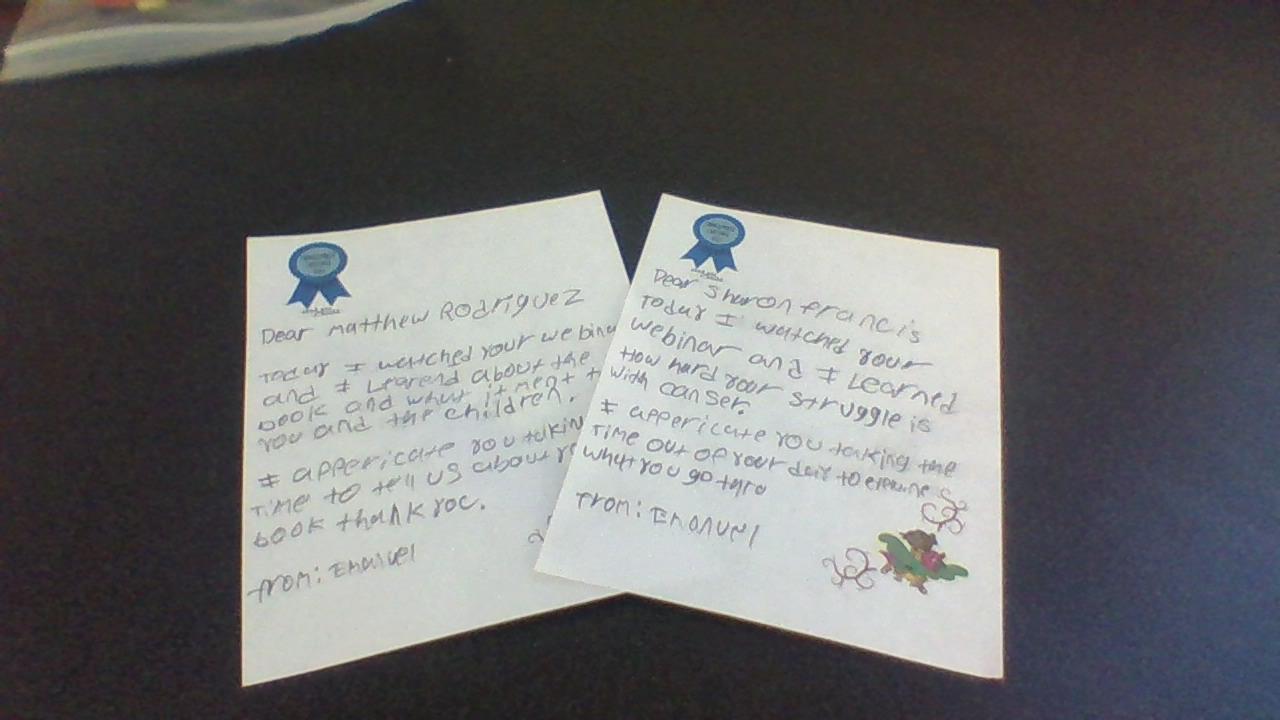 Dear matthew Rodriguez
Today I watched your webina
and I Learend about the
book and what it ment t
you and the children.
I appericate you takin
Time to tell us about
book thank you.
from: Emanuel
Dear Sharon francis
Today I watched your
webinar and I Learned
How hard your struggle is
with canser.
I appericate you taking the
Time out of your day to
what you go thro
From: Emanuel